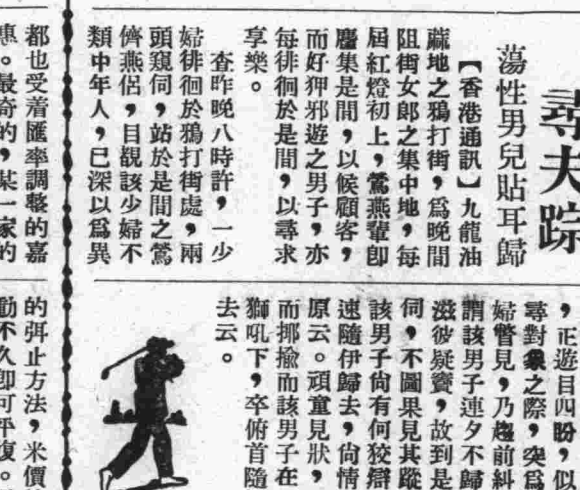 尋夫踪
蕩性男兒貼耳歸
【香港通訊】九龍油
蔴地之鴉打街，爲晚間
阻街女郎之集中地，每
屆紅燈初上，鶯燕輩卽
麕集是間，以候顧客，
而好狎邪遊之男子，亦
每徘徊於是間，以尋求
享樂。
查昨晚八時許，一少
婦徘徊於鴉打街處，兩
頭窺伺，站於是間之鶯
儕燕侶，目覩該少婦不
類中年人，已深以爲異
，正遊目四盼，似
尋對象之際，突爲
婦瞥見，乃趨前糾
謂該男子連夕不歸
滋彼疑竇，故到是
伺，不圖果見其蹤
該男子尙有何狡辯
速隨伊歸去，尙情
原云。頑童見狀，
而揶揄而該男子在
獅吼下，卒俯首隨
去云。
都也受着匯率調整的嘉
惠。最奇的，某一家的
的弭止方法，米價
動不久卽可平復。